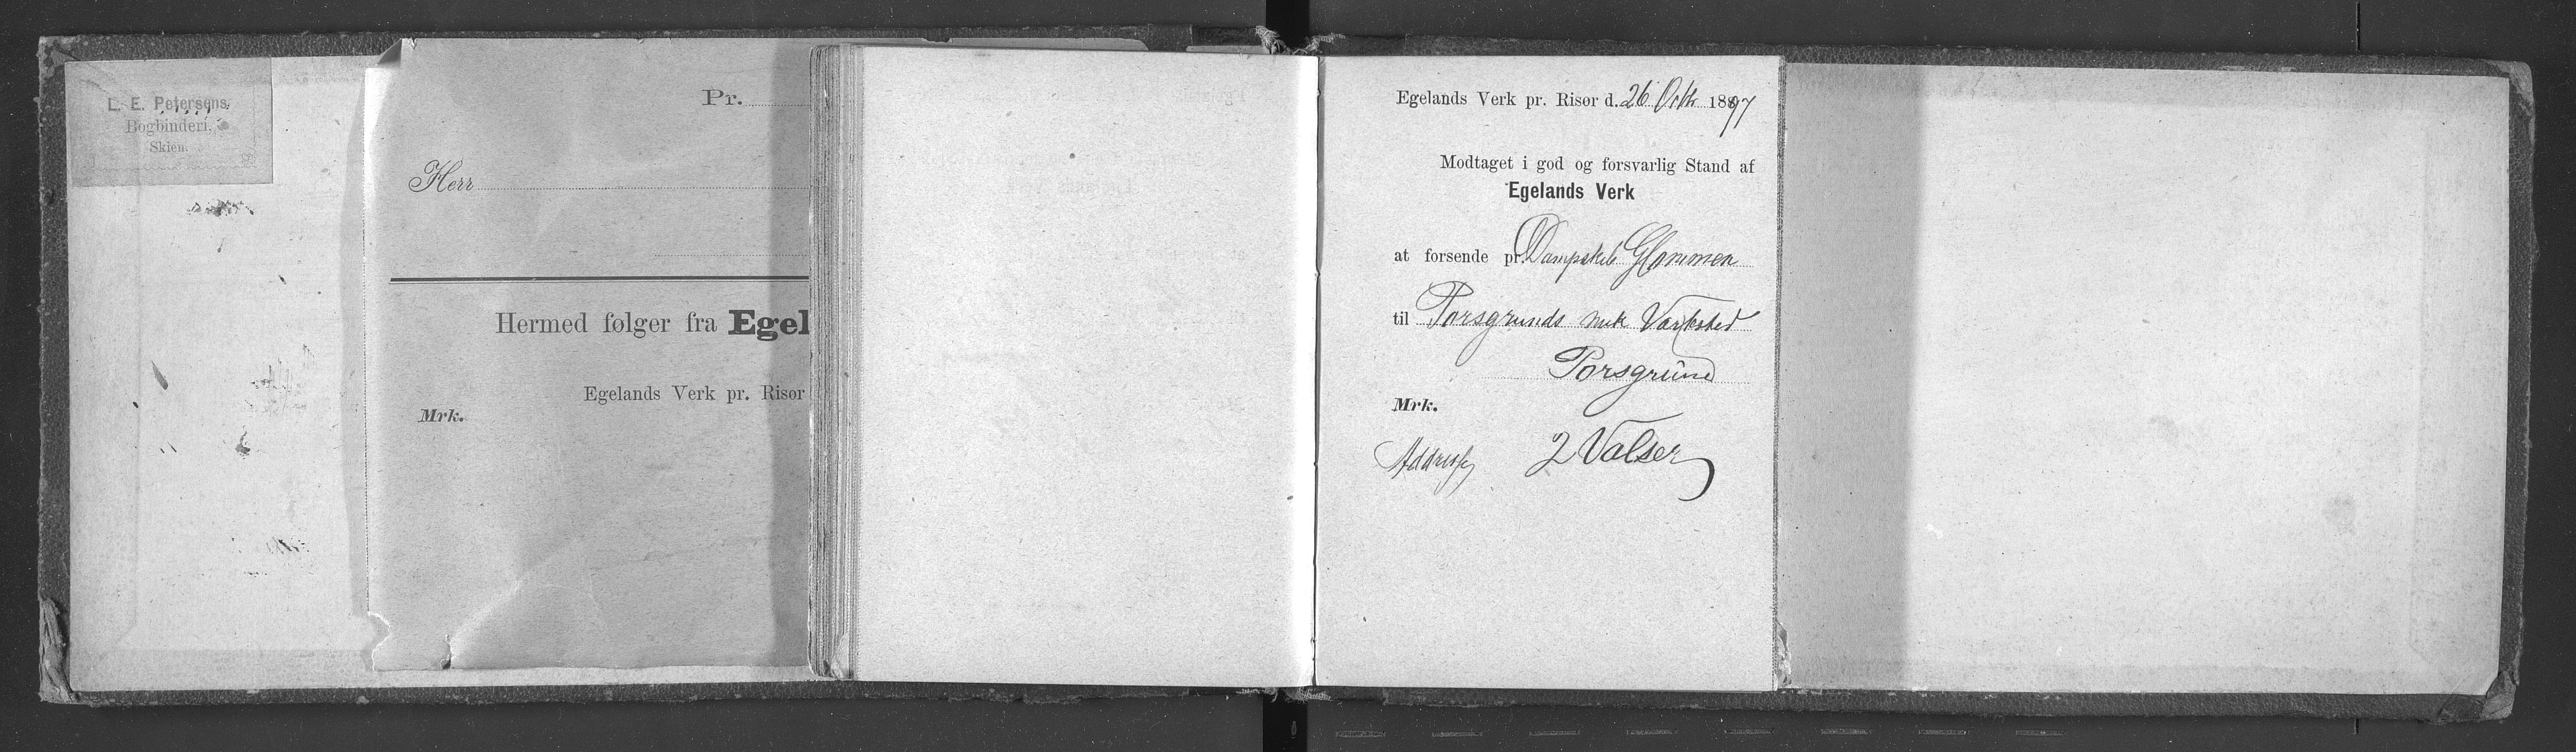 L. E. Petersens
Bogbinderi,
Skien.
Pr.
Herr
Hermed følger fra Egel
Egelands Verk pr. Risør
Mrk.
Egelands Verk pr. Risør d. 26 Octb 1897
Modtaget i god og forsvarlig Stand af
Egelands Verk
at forsende pr. Dampskib Glommen
til Porsgrunds mek Værksted
Porsgrund
Mrk.
Addresse 2 Valser